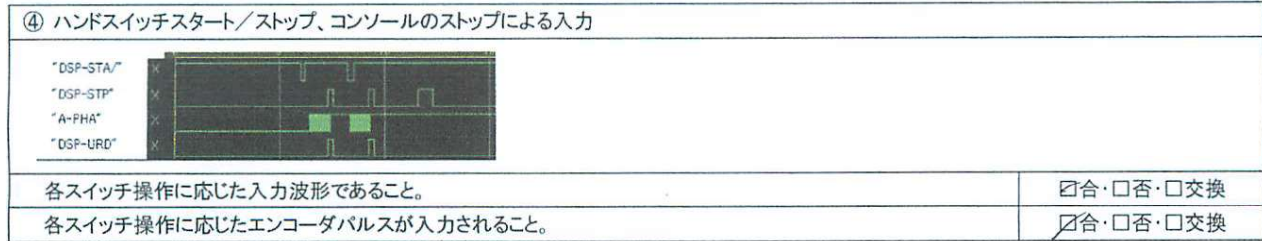 ④ ハンドスイッチスタート／ストップ、コンソールのストップによる入力
"DSP-STA/"
"DSP-STP"
"A-PHA"
"DSP-URD"
各スイッチ操作に応じた入力波形であること。 ☑合・☐否・☐交換
各スイッチ操作に応じたエンコーダパルスが入力されること。 ☑合・☐否・☐交換